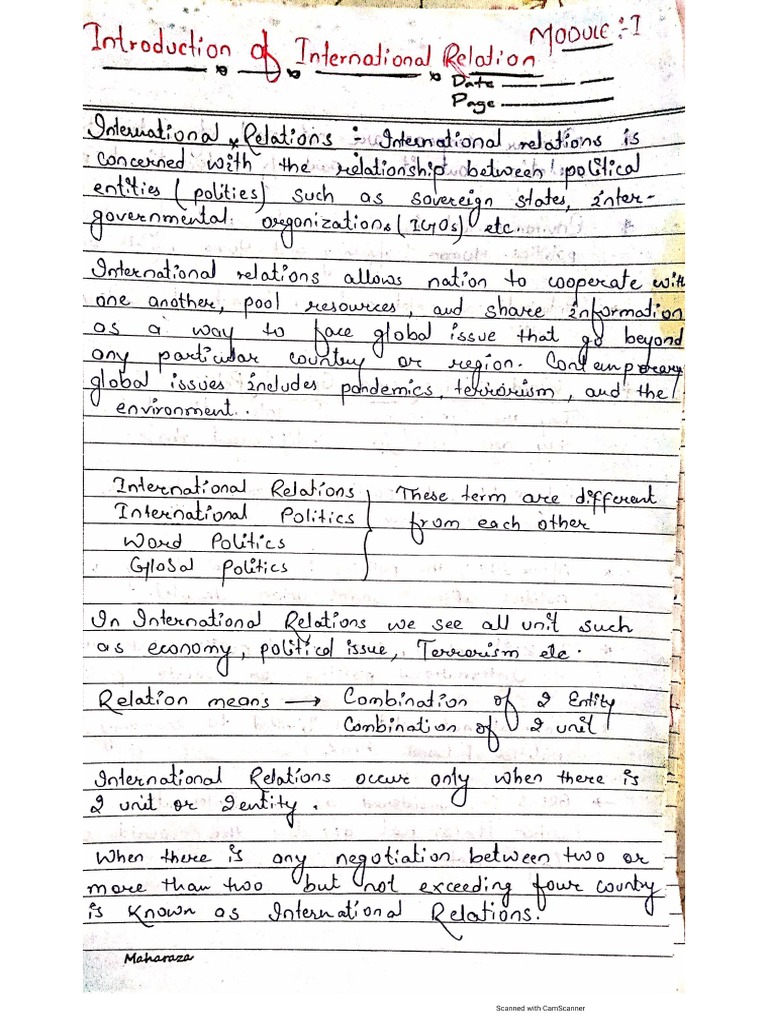 Introduction of International Relation
Module:-I
Date
Page
International Relations :- International relations is
concerned with the relationship between political
entities (polities) such as sovereign states, inter-
governmental oregonizations (IGOs) etc.
International relations allows nation to cooperate with
one another, pool resources, and share information
as a way to face global issue that go beyond
any particular country or region. Contemporary
global issues includes pandemics, terrorism, and the
environment.
International Relations
International Politics
Word Politics
Global Politics
These term are different
from each other
In International Relations we see all unit such
as economy, political issue, Terrorism etc.
Relation means → Combination of 2 Entity
Combination of 2 unit
International Relations occur only when there is
2 unit or 2 entity.
When there is any negotiation between two or
more than two but not exceeding four country
is known as International Relations.
Maharaza
Scanned with CamScanner